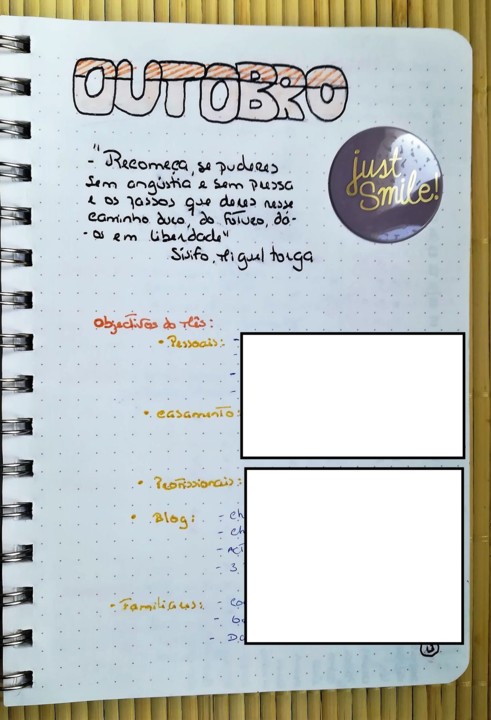 OUTUBRO
- "Recomeça, se puderes
Sem angústia e sem pressa
e os passos que deres nesse
caminho duro, do futuro, dá-
-os em liberdade"
Sísifo, Miguel torga
just
Smile!
Objectivos do Mês:
• Pessoais: -
-
-
• Casamento:
• Profissionais:
• Blog: - Ch
- Ch
- Aç
- 3
• Familiares: - Co
-
- Do